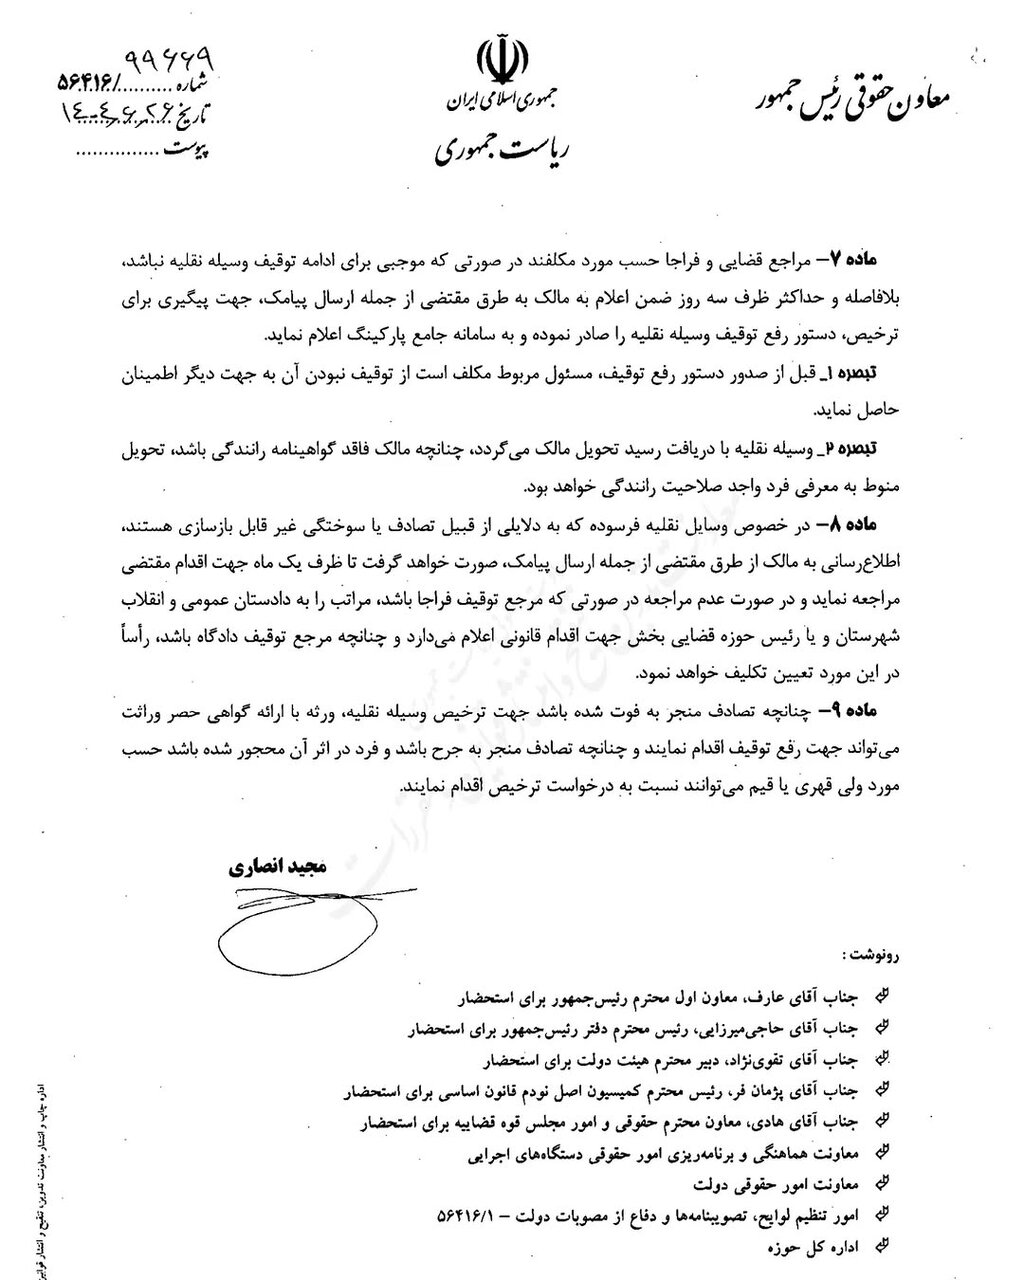 معاون حقوقی رئیس جمهور
جمهوری اسلامی ایران
ریاست جمهوری
۹۹۶۶۹
شماره ........../۵۶۴۱۶
تاریخ ۱۴۰۴,۶,۲۶
پیوست ...............
ماده ۷– مراجع قضایی و فراجا حسب مورد مکلفند در صورتی که موجبی برای ادامه توقیف وسیله نقلیه نباشد،
بلافاصله و حداکثر ظرف سه روز ضمن اعلام به مالک به طرق مقتضی از جمله ارسال پیامک، جهت پیگیری برای
ترخیص، دستور رفع توقیف وسیله نقلیه را صادر نموده و به سامانه جامع پارکینگ اعلام نماید.
تبصره ۱_ قبل از صدور دستور رفع توقیف، مسئول مربوط مکلف است از توقیف نبودن آن به جهت دیگر اطمینان
حاصل نماید.
تبصره ۲_ وسیله نقلیه با دریافت رسید تحویل مالک می‌گردد، چنانچه مالک فاقد گواهینامه رانندگی باشد، تحویل
منوط به معرفی فرد واجد صلاحیت رانندگی خواهد بود.
ماده ۸– در خصوص وسایل نقلیه فرسوده که به دلایلی از قبیل تصادف یا سوختگی غیر قابل بازسازی هستند،
اطلاع‌رسانی به مالک از طرق مقتضی از جمله ارسال پیامک، صورت خواهد گرفت تا ظرف یک ماه جهت اقدام مقتضی
مراجعه نماید و در صورت عدم مراجعه در صورتی که مرجع توقیف فراجا باشد، مراتب را به دادستان عمومی و انقلاب
شهرستان و یا رئیس حوزه قضایی بخش جهت اقدام قانونی اعلام می‌دارد و چنانچه مرجع توقیف دادگاه باشد، رأساً
در این مورد تعیین تکلیف خواهد نمود.
ماده ۹– چنانچه تصادف منجر به فوت شده باشد جهت ترخیص وسیله نقلیه، ورثه با ارائه گواهی حصر وراثت
می‌تواند جهت رفع توقیف اقدام نمایند و چنانچه تصادف منجر به جرح باشد و فرد در اثر آن محجور شده باشد حسب
مورد ولی قهری یا قیم می‌توانند نسبت به درخواست ترخیص اقدام نمایند.
مجید انصاری
رونوشت :
جناب آقای عارف، معاون اول محترم رئیس‌جمهور برای استحضار
جناب آقای حاجی‌میرزایی، رئیس محترم دفتر رئیس‌جمهور برای استحضار
جناب آقای تقوی‌نژاد، دبیر محترم هیئت دولت برای استحضار
جناب آقای پژمان فر، رئیس محترم کمیسیون اصل نودم قانون اساسی برای استحضار
جناب آقای هادی، معاون محترم حقوقی و امور مجلس قوه قضاییه برای استحضار
معاونت هماهنگی و برنامه‌ریزی امور حقوقی دستگاه‌های اجرایی
معاونت امور حقوقی دولت
امور تنظیم لوایح، تصویبنامه‌ها و دفاع از مصوبات دولت – ۵۶۴۱۶/۱
اداره کل حوزه
اداره چاپ و انتشار معاونت تدوین، تنقیح و انتشار